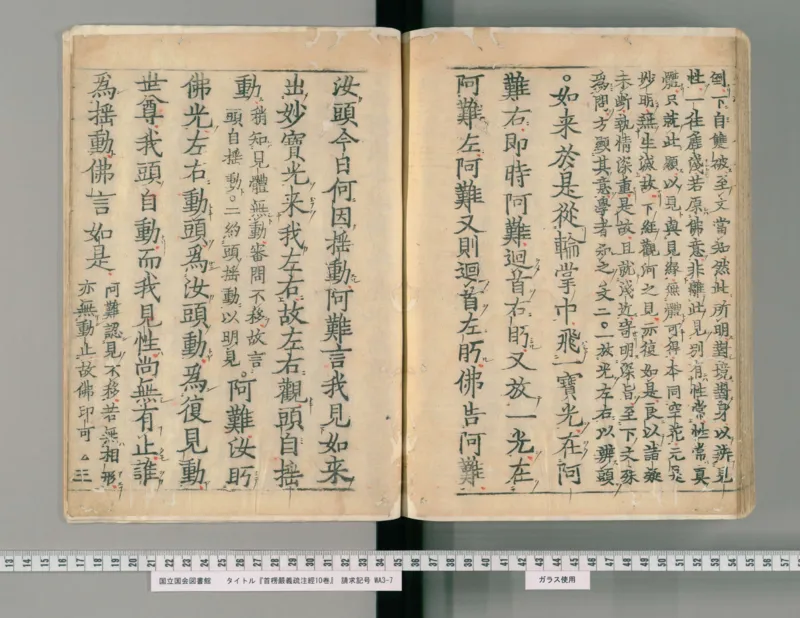 到下自雖破至文當知然此所明對境對身以辨見
性一往虛淺若原佛意非離此見別有性常性常真
體只就此顯以見與見緣無體可得本同空花元是
妙明無生滅故下經觀河之見亦復如是良以諸疑
未斷執情深重是故且就淺近寄明深旨至下文殊
為問方顯其意學者知之文二。一放光左右以辨頭
。如来於是從輪掌中飛一寶光在阿
難右即時阿難迴首右眄又放一光在
阿難左阿難又則迴首左眄佛告阿難
汝頭今日何因揺動阿難言我見如来
出妙寶光来我左右故左右觀頭自揺
動
稍知見體無動審問不移故言
頭自揺動。二約頭揺動以明見
。阿難汝眄
佛光左右動頭為汝頭動為復見動
世尊我頭自動而我見性尚無有止誰
為揺動佛言如是
阿難認見不移若無相形
亦無動止故佛印可
三
国立国会図書館 タイトル『首楞嚴義疏注經10巻』 請求記号 WA3-7
ガラス使用